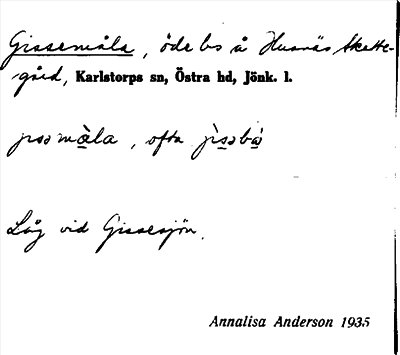 Gissemåla, öde ls å Husnäs Skatte-
gård, Karlstorps sn, Östra hd, Jönk. l.
jɪsəmàla, ofta
Låg vid Gissesjön.
Annalisa Anderson 1935